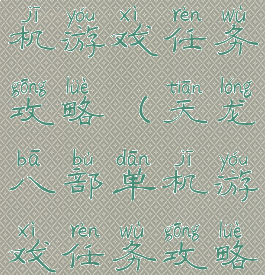 jī yóu xì rèn wù
机游戏任务
gōng lüè tiān lóng
攻略（天龙
bā bù dān jī yóu
八部单机游
xì rèn wù gōng lüè
戏任务攻略